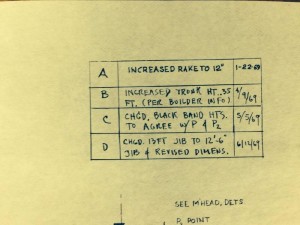 A INCREASED RAKE TO 12" 1-22-69
B INCREASED TRUNK HT. .35 4/9/69
FT. (PER BUILDER INFO)
C CHGD. BLACK BAND HTS. 5/5/69
TO AGREE W/P & P2
D CHGD. 13FT JIB TO 12'-6" 6/12/69
JIB & REVISED DIMENS.
SEE M'HEAD, DETS
P2 POINT